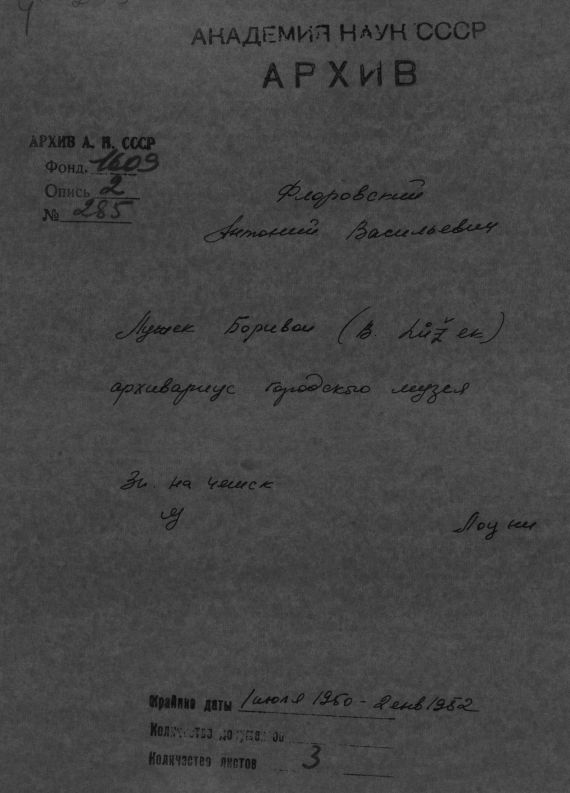 АКАДЕМИЯ НАУК СССР
АРХИВ
АРХИВ А. Н. СССР
Фонд. 1609
Опись 2
№ 285
Флоровский
Антоний Васильевич
Лужек Боривой (B. Lůžek)
архивариус городского музея
3 п. на чешск
яз
Лоуни
Крайние даты 1 июля 1960 - 2 янв 1962
Количество документов
Количество листов 3